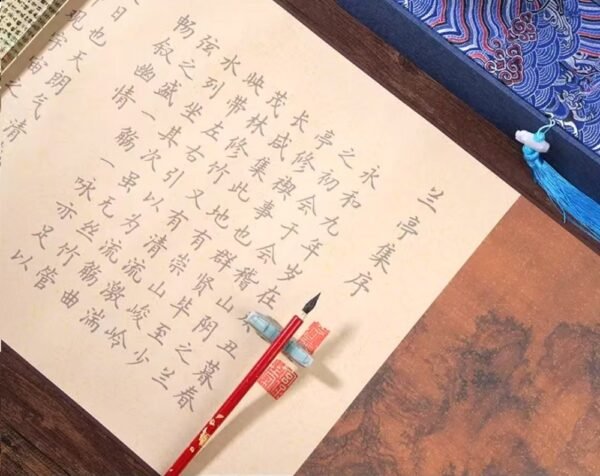 兰亭集序
永和九年岁在丑暮春
之初会于会稽山阴之兰
亭修禊事也群贤毕至少
长咸集此地有崇山峻岭
茂林修竹又有清流激湍
映带左右引以为流觞曲
水列坐其次虽无丝竹管
弦之盛一觞一咏亦足以
畅叙幽情
日也天朗气清
观宇宙之